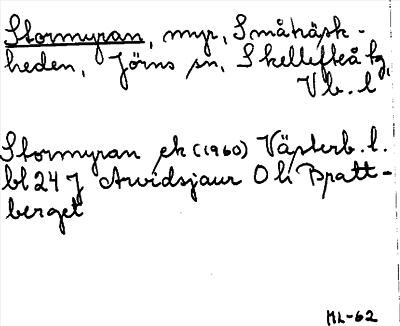 Stormyran, myr, Småträsk-
heden, Jörns sn, Skellefteå tg,
Vb. l
Stormyran ek (1960) Västerb. l.
bl 24 J Arvidsjaur O li Bratt-
berget
ML-62